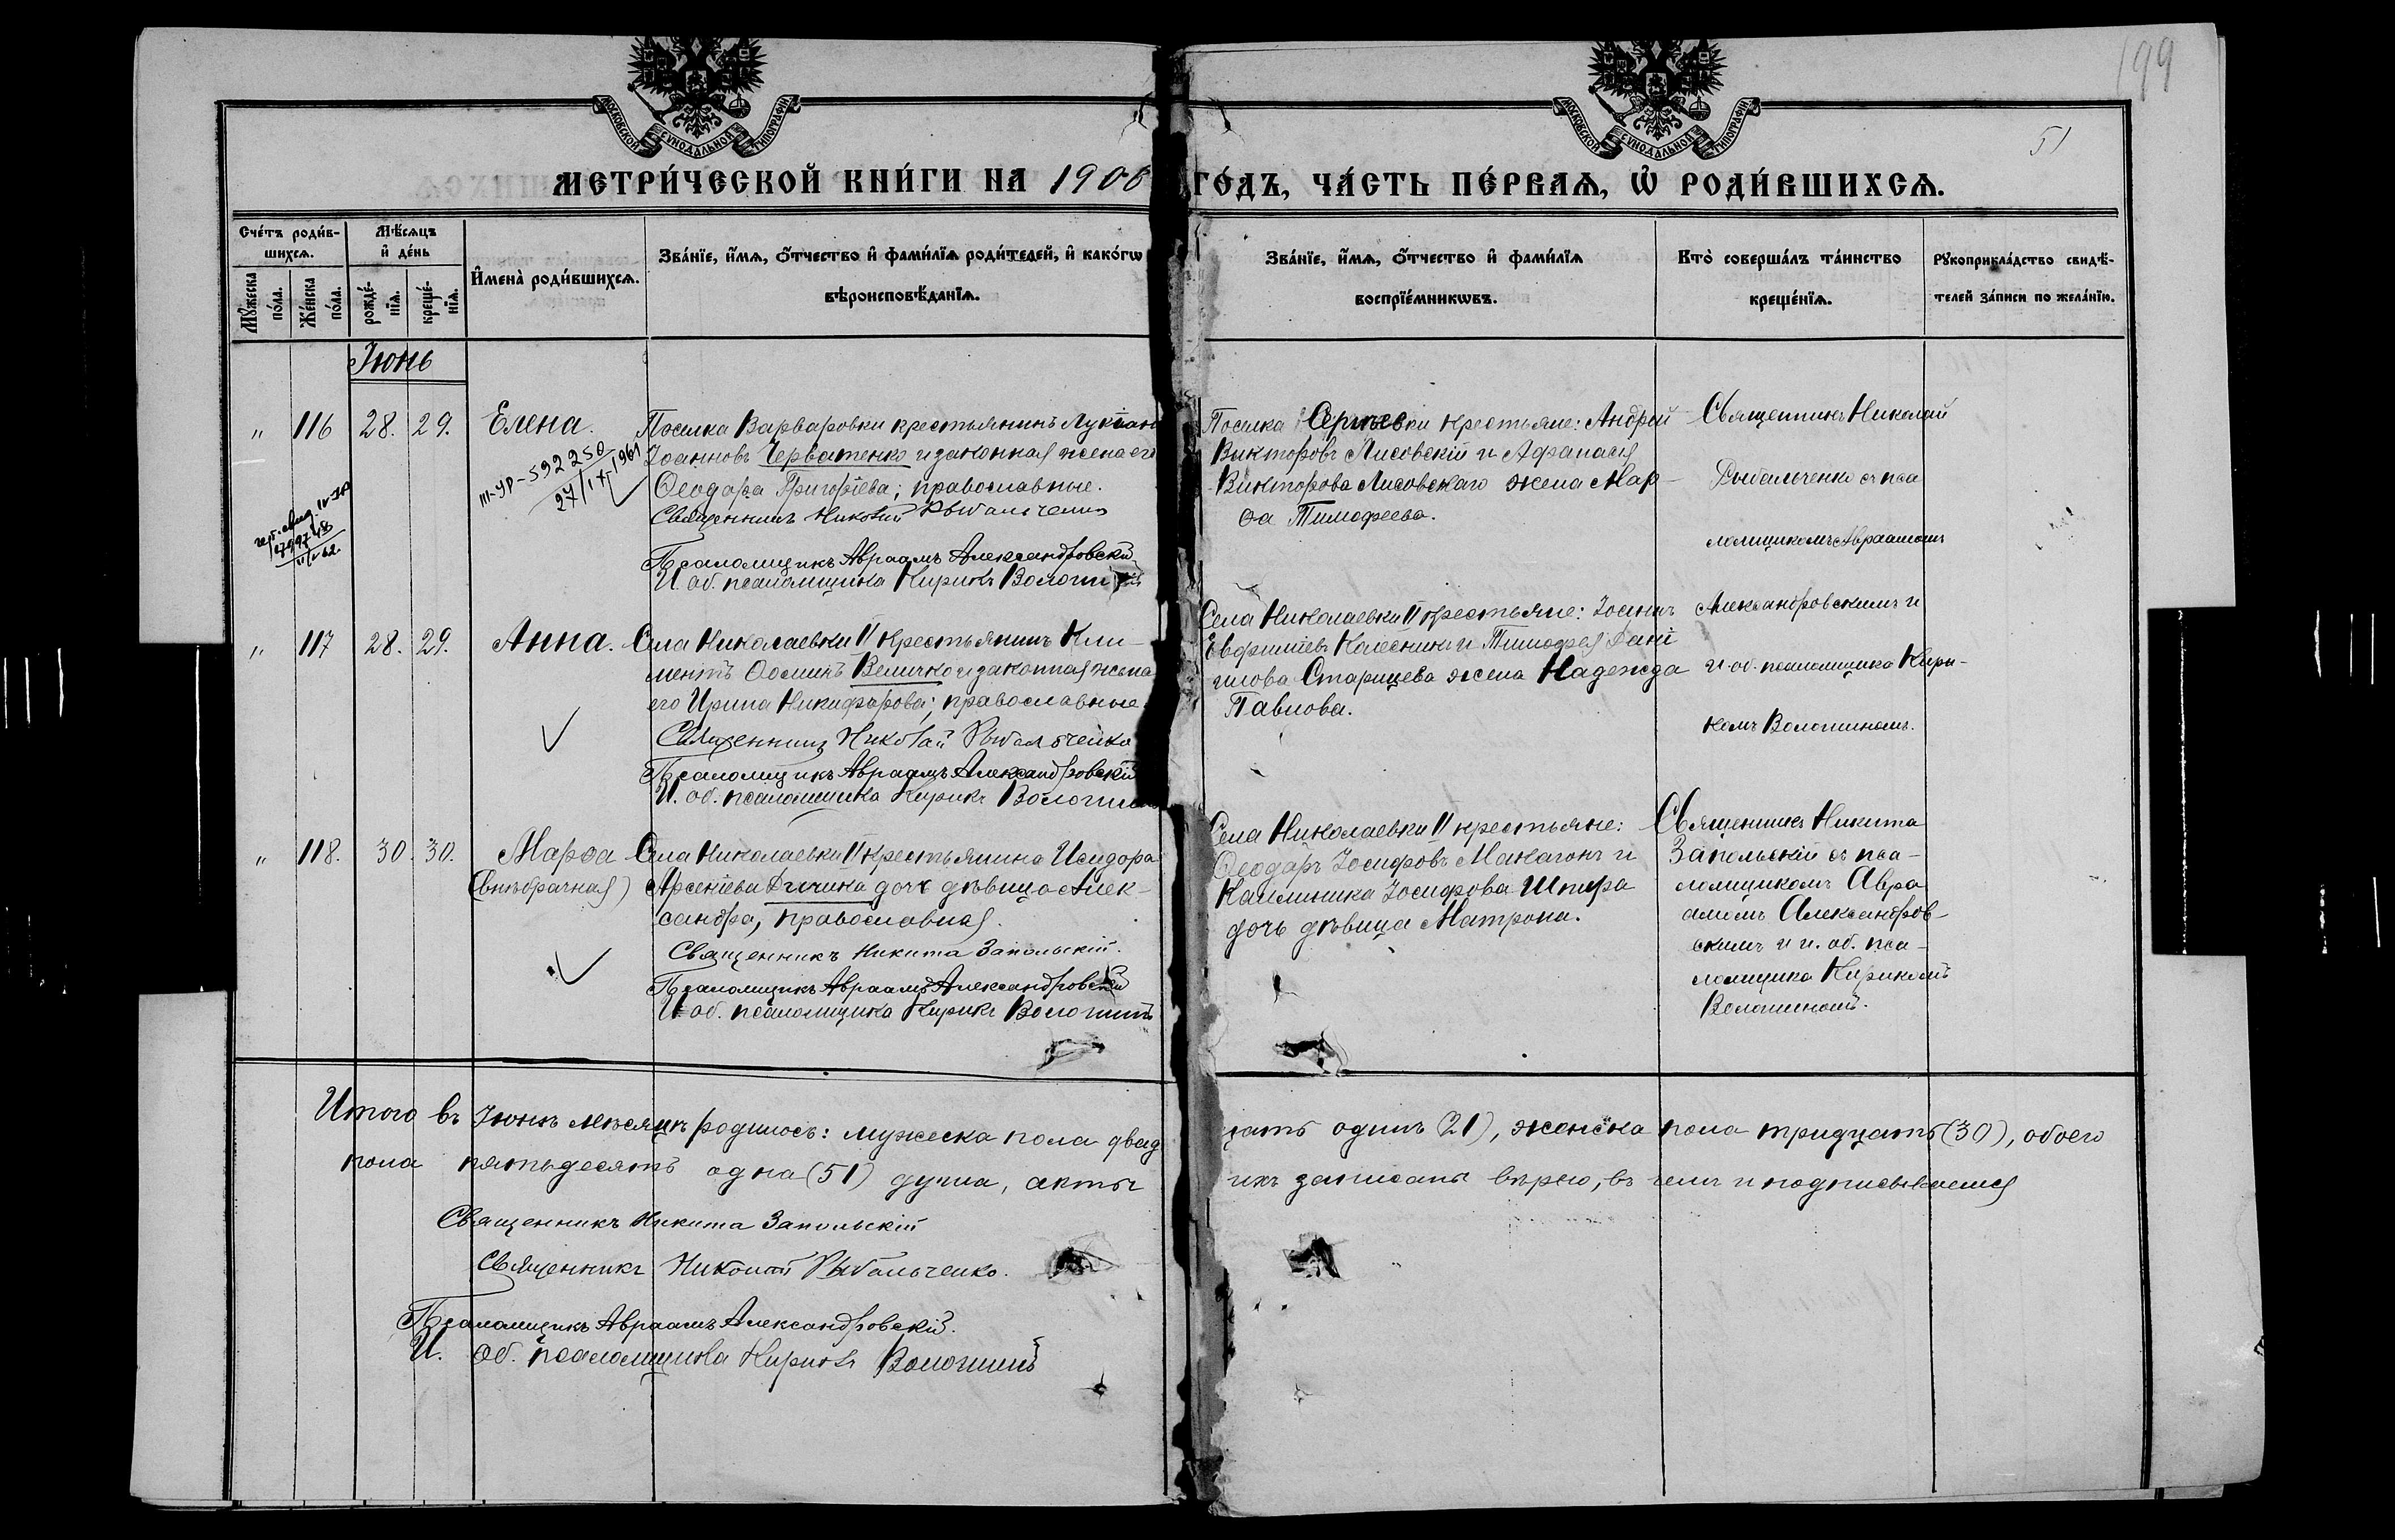 199
51
МОСКОВСКОЙ СУНОДАЛЬНОЙ ТИПОГРАФІИ
МОСКОВСКОЙ СУНОДАЛЬНОЙ ТИПОГРАФІИ
МЕТРИ́ЧЕСКОЙ КНИ́ГИ НА 1906 ГО́ДЪ, ЧА́СТЬ ПЕ́РВАѦ, Ѡ҆ РОДИ́ВШИХСѦ.
Сче́тъ роди́в-
шихсѧ.
Мꙋ́жеска по́ла.
Же́нска по́ла.
Мѣ́сѧцъ
и҆ де́нь
рожде́-нїѧ.
креще́-нїѧ.
И҆мена̀ роди́вшихсѧ.
Зва́нїе, и҆́мѧ, ѻ҆́тчество и҆ фами́лїѧ роди́телей, и҆ како́гѡ
вѣроисповѣ́данїѧ.
Зва́нїе, и҆́мѧ, ѻ҆́тчество и҆ фами́лїѧ
воспрїе́мникѡвъ.
Кто̀ соверша́лъ та́инство
креще́нїѧ.
Рꙋкоприкла́дство свидѣ́-
телей за́писи по жела́нїю.
Іюнь
„ 116 28. 29. Елена.
III-УР-592250
27/IX 1961
Поселка Варваровки крестьянинъ Лукіанъ
Іоанновъ Черватенко и законная жена его
Ѳеодора Григоріева; православные.
Священникъ Николай Рыбальченко
Псаломщикъ Авраамъ Александровскій
И. об. псаломщика Кирикъ Волошинъ
Поселка Сергѣевки крестьяне: Андрей
Викторовъ Лисовскій и Афанасія
Викторова Лисовскаго жена Мар-
ѳа Тимофеева.
Священникъ Николай
Рыбальченко съ пса
ломщикомъ Авраамомъ
Александровскимъ и
и. об. псаломщика Кири-
комъ Волошиномъ.
„ 117 28. 29. Анна.
Села Николаевки II крестьянинъ Кли-
ментъ Ѳоминъ Величко и законная жена
его Ирина Никифорова; православные.
Священникъ Николай Рыбальченко
Псаломщикъ Авраамъ Александровскій
И. об. псаломщика Кирикъ Волошинъ
Села Николаевки II крестьяне: Іоаннъ
Евфиміевъ Колесникъ и Тимофея Дані
илова Старицева жена Надежда
Павлова.
„ 118. 30. 30. Марѳа
(внѣбрачная)
Села Николаевки II крестьянина Исидора
Арсеніева Дичина дочь дѣвица Алек-
сандра, православная.
Священникъ Никита Запольскій.
Псаломщикъ Авраамъ Александровскій
И. об. псаломщика Кирикъ Волошинъ
Села Николаевки II крестьяне:
Ѳеодоръ Іосифовъ Макагонъ и
Каллиника Іосифова Шпира
дочь дѣвица Матрона.
Священникъ Никита
Запольскій съ пса-
ломщикомъ Авра
амомъ Александров-
скимъ и и. об. пса-
ломщика Кирикомъ
Волошиномъ.
Итого въ Іюнѣ мѣсяцѣ родилось: мужеска пола двад цать одинъ (21), женска пола тридцать (30), обоего
пола пятьдесятъ одна (51) душа, акты ихъ записаны вѣрно, въ чемъ и подписываемся
Священникъ Никита Запольскій
Священникъ Николай Рыбальченко.
Псаломщикъ Авраамъ Александровскій.
И. об. псаломщика Кирикъ Волошинъ